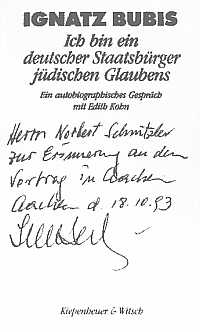 IGNATZ BUBIS
Ich bin ein
deutscher Staatsbürger
jüdischen Glaubens
Ein autobiographisches Gespräch
mit Edith Kohn
Herrn Norbert Schnitzler
zur Erinnerung an den
Vortrag in Aachen
Aachen d 18.10.93
Kiepenheuer & Witsch